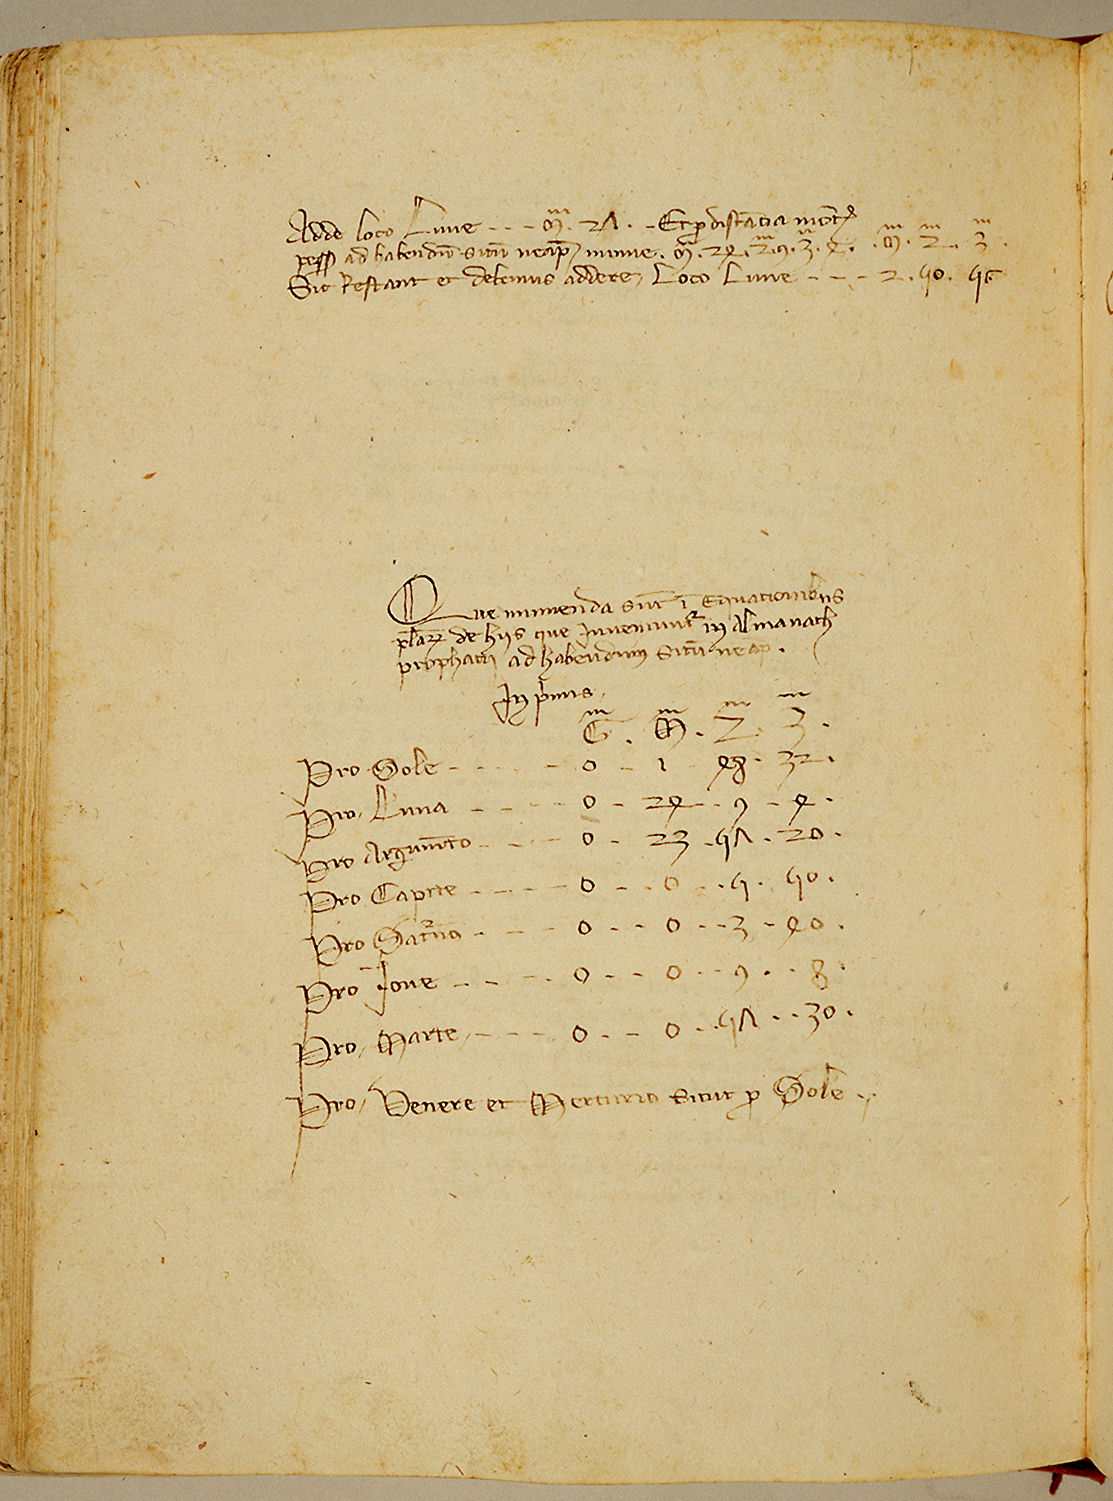 Adde loco Lune - - - m̃. 27. - Et p distācia mōt
pess ad habendū sitū neap minue. m̃. 24. 2. 9. 3. 4. . m. 2. 3.
Sic Restant et debemus addere, Loco Lune - - - 2. 50. 56
Que minuenda sūt ī Equationibus
plāꝝ de hiis que Inveniunt in Almanach
prophacii ad habendum Sitū neap.
In primis.
G. M. 2. 3.
Pro Sole - - - - 0 - 1 - 48. 32.
Pro Luna - - - - 0 - 24 - 9 - 4.
Pro Argumēto - - - 0 - 23. 57. 20.
Pro Capite - - - - 0 - - 0 - - 5. 50.
Pro Saturno - - - 0 - - 0 - - 3 - 40.
Pro Iove - - - 0 - - 0 - - 9 . . 8.
Pro Marte - - - - 0 - - 0 - - 57 . . 30.
Pro Venere et Mercurio sicut p Sole